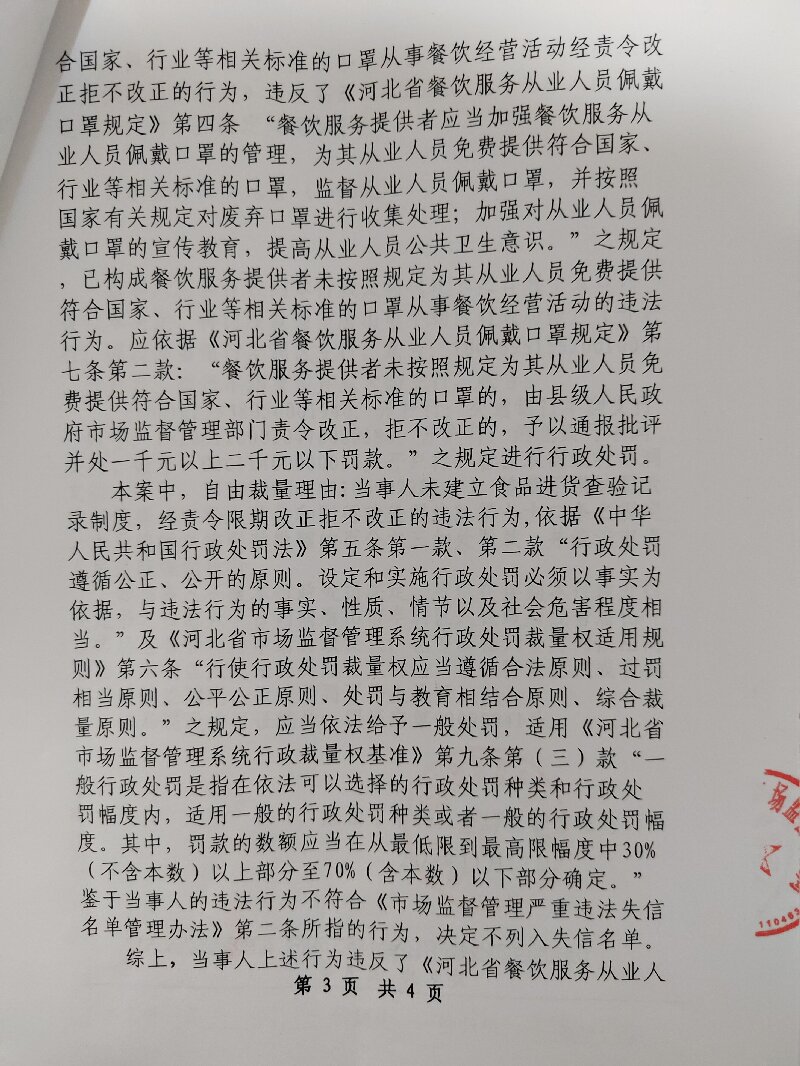 合国家、行业等相关标准的口罩从事餐饮经营活动经责令改
正拒不改正的行为，违反了《河北省餐饮服务从业人员佩戴
口罩规定》第四条 “餐饮服务提供者应当加强餐饮服务从
业人员佩戴口罩的管理，为其从业人员免费提供符合国家、
行业等相关标准的口罩，监督从业人员佩戴口罩，并按照
国家有关规定对废弃口罩进行收集处理；加强对从业人员佩
戴口罩的宣传教育，提高从业人员公共卫生意识。”之规定
，已构成餐饮服务提供者未按照规定为其从业人员免费提供
符合国家、行业等相关标准的口罩从事餐饮经营活动的违法
行为。应依据《河北省餐饮服务从业人员佩戴口罩规定》第
七条第二款：“餐饮服务提供者未按照规定为其从业人员免
费提供符合国家、行业等相关标准的口罩的，由县级人民政
府市场监督管理部门责令改正，拒不改正的，予以通报批评
并处一千元以上二千元以下罚款。”之规定进行行政处罚。
本案中，自由裁量理由：当事人未建立食品进货查验记
录制度，经责令限期改正拒不改正的违法行为,依据《中华
人民共和国行政处罚法》第五条第一款、第二款“行政处罚
遵循公正、公开的原则。设定和实施行政处罚必须以事实为
依据，与违法行为的事实、性质、情节以及社会危害程度相
当。”及《河北省市场监督管理系统行政处罚裁量权适用规
则》第六条“行使行政处罚裁量权应当遵循合法原则、过罚
相当原则、公平公正原则、处罚与教育相结合原则、综合裁
量原则。”之规定，应当依法给予一般处罚，适用《河北省
市场监督管理系统行政裁量权基准》第九条第（三）款“一
般行政处罚是指在依法可以选择的行政处罚种类和行政处
罚幅度内，适用一般的行政处罚种类或者一般的行政处罚幅
度。其中，罚款的数额应当在从最低限到最高限幅度中30%
（不含本数）以上部分至70%（含本数）以下部分确定。”
鉴于当事人的违法行为不符合《市场监督管理严重违法失信
名单管理办法》第二条所指的行为，决定不列入失信名单。
综上，当事人上述行为违反了《河北省餐饮服务从业人
第 3 页 共 4 页
场监
110463